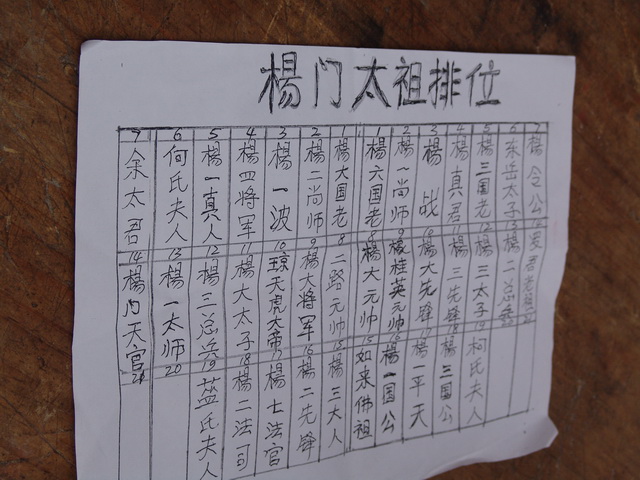 楊门太祖排位
7 6 5 4 3 2 1 1 2 3 4 5 6 7
余太君 何氏夫人 楊一真人 楊四將军 楊一波 楊二尚师 楊大国老 楊六国老 楊一尚师 楊战 楊真君 楊三国老 东岳太子 楊令公
14 13 12 11 10 9 8 8 9 10 11 12 13
楊门天官 楊一太师 楊三总兵 楊大太子 琼天虎大帝 楊大將军 二路元帅 楊大元帅 桂英元帅 楊大先锋 楊三先锋 楊三太子 楊二总兵
21 20 19 18 17 16 15 15 16 17 18 19
蓝氏夫人 楊二法司 楊七法官 楊二先锋 楊三大人 如来佛祖 楊一国公 楊一平天 楊三国公 柯氏夫人